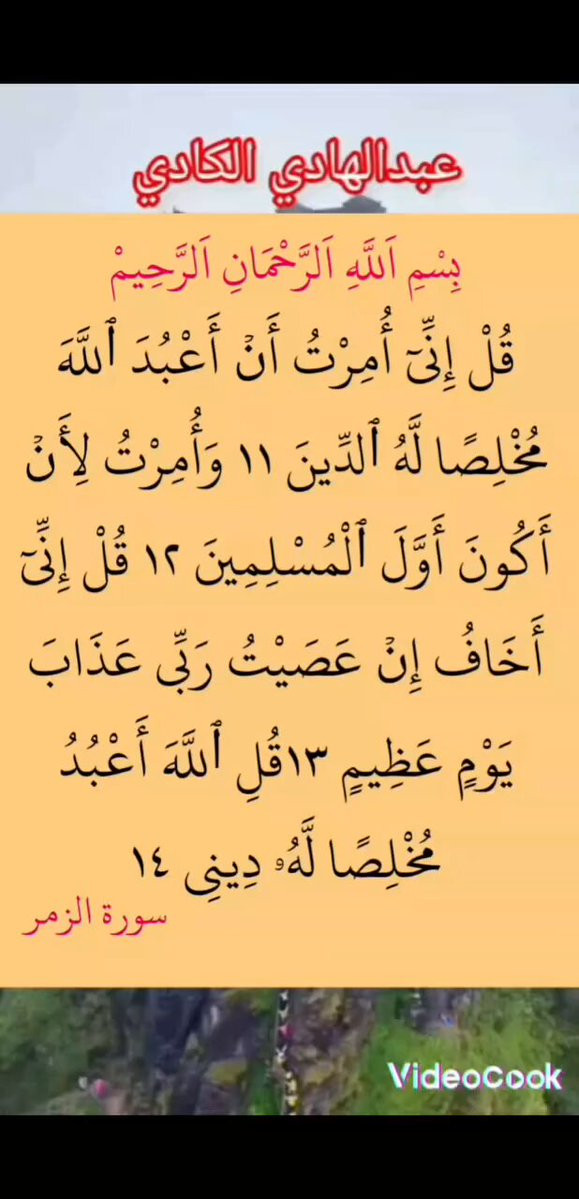 عبدالهادي الكادي
بِسْمِ اَللَّهِ اَلرَّحْمَانِ اَلرَّحِيمْ
قُلْ إِنِّىٓ أُمِرْتُ أَنْ أَعْبُدَ ٱللَّهَ
مُخْلِصًا لَّهُ ٱلدِّينَ ١١ وَأُمِرْتُ لِأَنْ
أَكُونَ أَوَّلَ ٱلْمُسْلِمِينَ ١٢ قُلْ إِنِّىٓ
أَخَافُ إِنْ عَصَيْتُ رَبِّى عَذَابَ
يَوْمٍ عَظِيمٍ ١٣قُلِ ٱللَّهَ أَعْبُدُ
مُخْلِصًا لَّهُۥ دِينِى ١٤
سورة الزمر
VideoCook